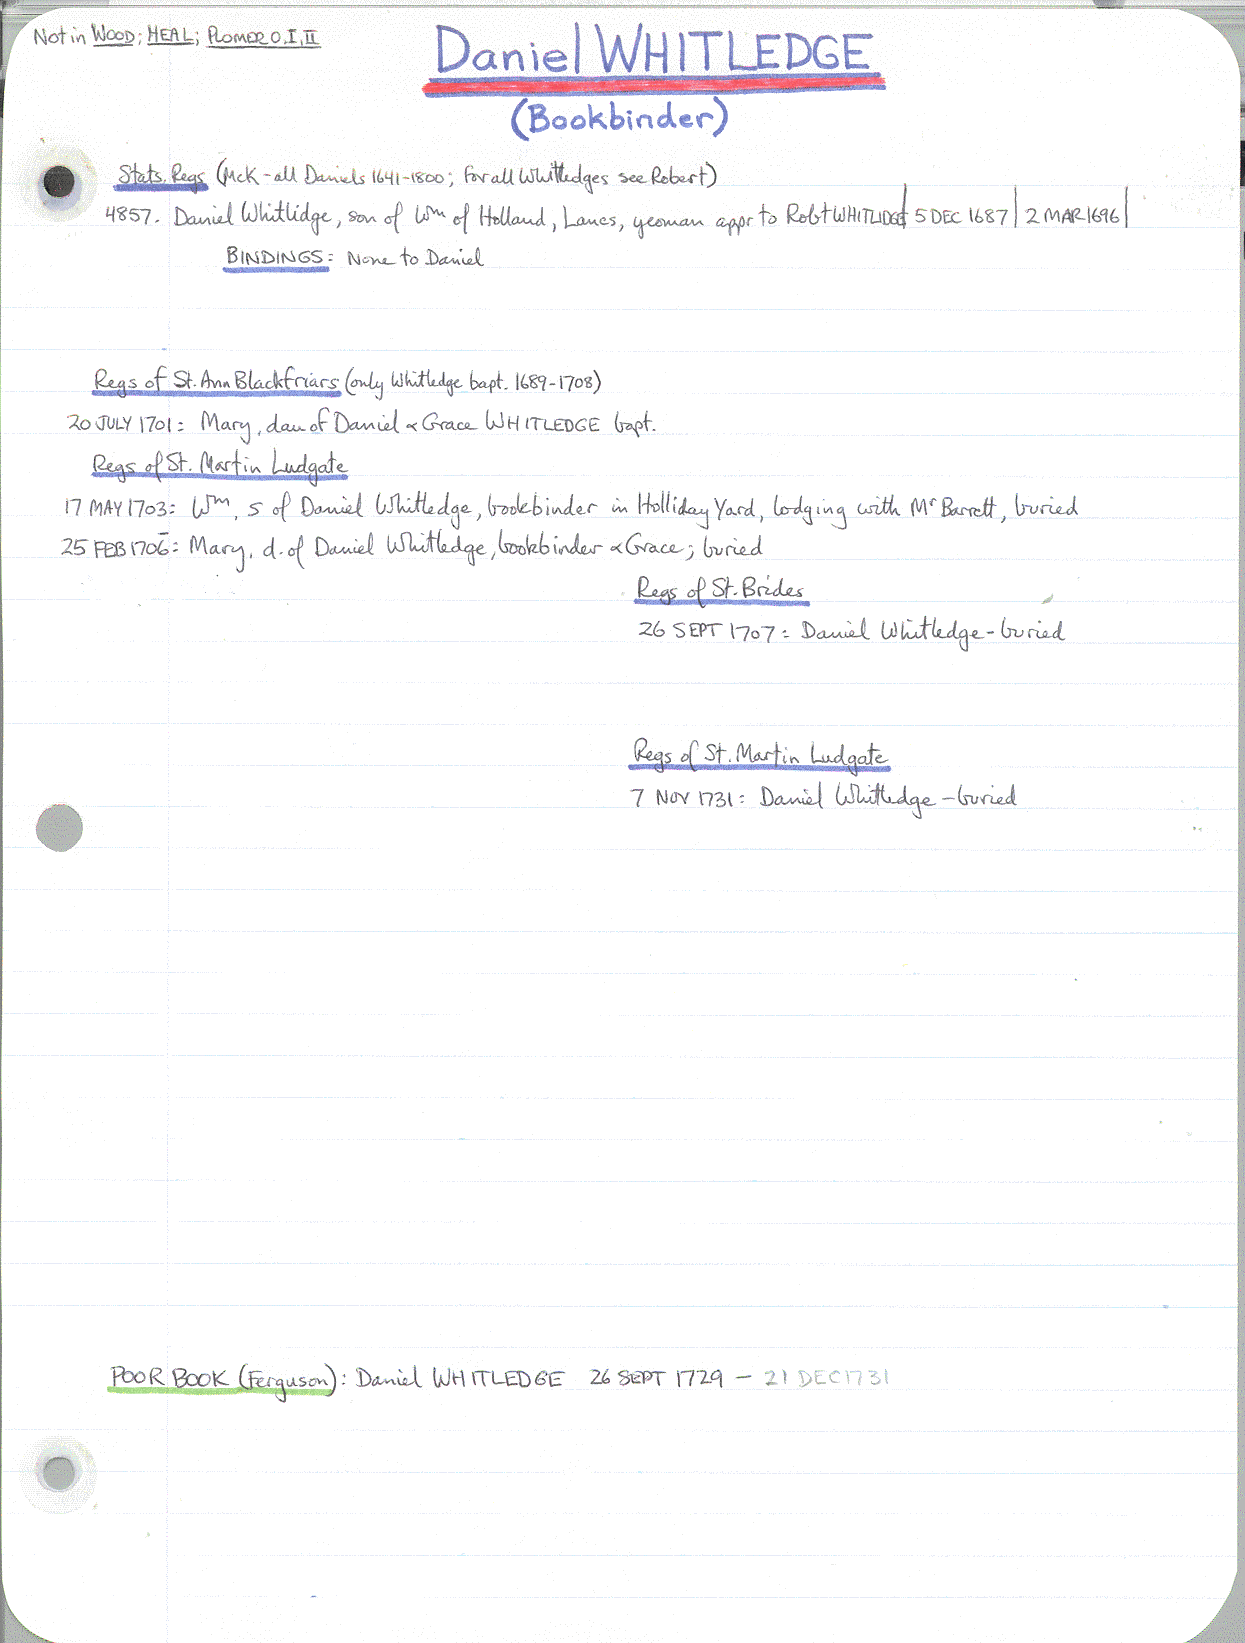 Not in WOOD; HEAL; PLOMER O, I, II
Daniel WHITLEDGE
(Bookbinder)
Stats. Regs (McK - all Daniels 1641-1800; for all Whitledges see Robert)
4857. Daniel Whitlidge, son of Wm of Holland, Lancs, yeoman appr to Robt WHITLIDGE | 5 DEC 1687 | 2 MAR 1696 |
BINDINGS: None to Daniel
Regs of St. Ann Blackfriars (only Whitledge bapt. 1689-1708)
20 JULY 1701: Mary, dau of Daniel & Grace WHITLEDGE bapt.
Regs of St. Martin Ludgate
17 MAY 1703: Wm, s of Daniel Whitledge, bookbinder in Holliday Yard, lodging with Mr Barrett, buried
25 FEB 1706: Mary, d. of Daniel Whitledge, bookbinder & Grace; buried
Regs of St. Brides
26 SEPT 1707: Daniel Whitledge - buried
Regs of St. Martin Ludgate
7 NOV 1731: Daniel Whitledge - buried
POOR BOOK (Ferguson): Daniel WHITLEDGE 26 SEPT 1729 - 21 DEC 1731